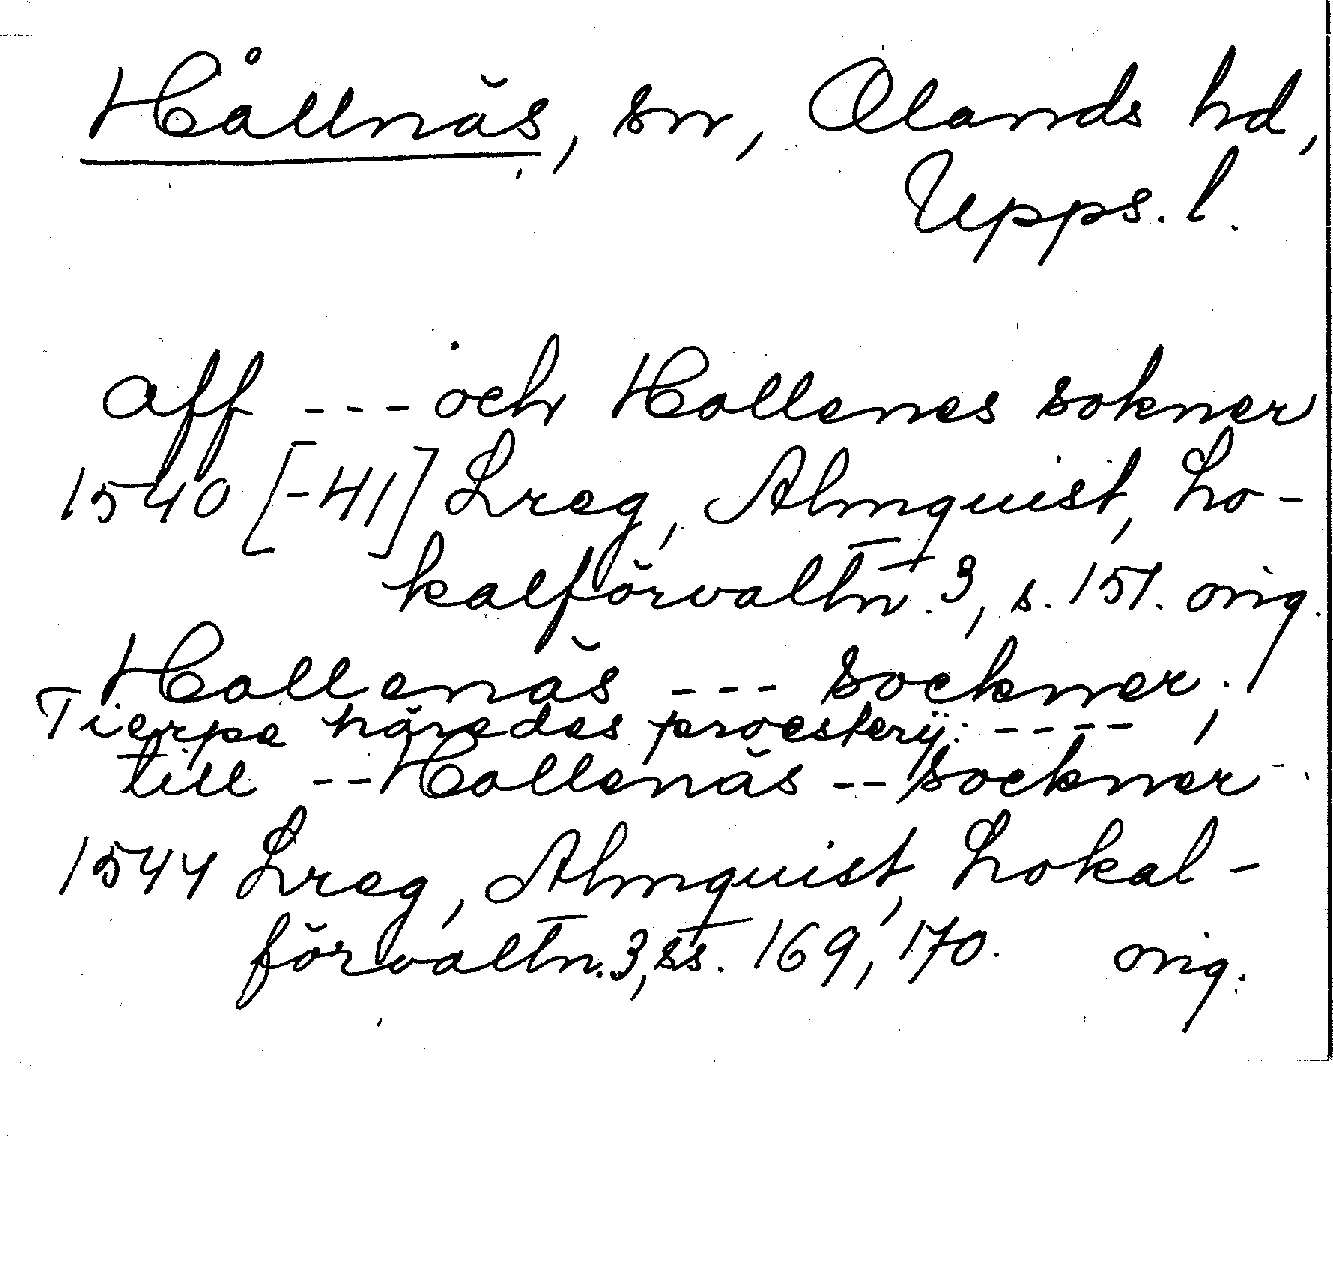 Hållnäs, sn, Olands hd,
Upps. l.
aff --- och Hallenes sokner
1540 [-41] Lreg, Almquist, Lo-
kalförvaltn. 3, s. 151. orig.
Hallenäs --- sockner.
Tierpe häredes proesterij: ----,
till -- Hallenäs -- sockner
1544 Lreg, Almquist, Lokal-
förvaltn. 3, ss. 169, 170. orig.